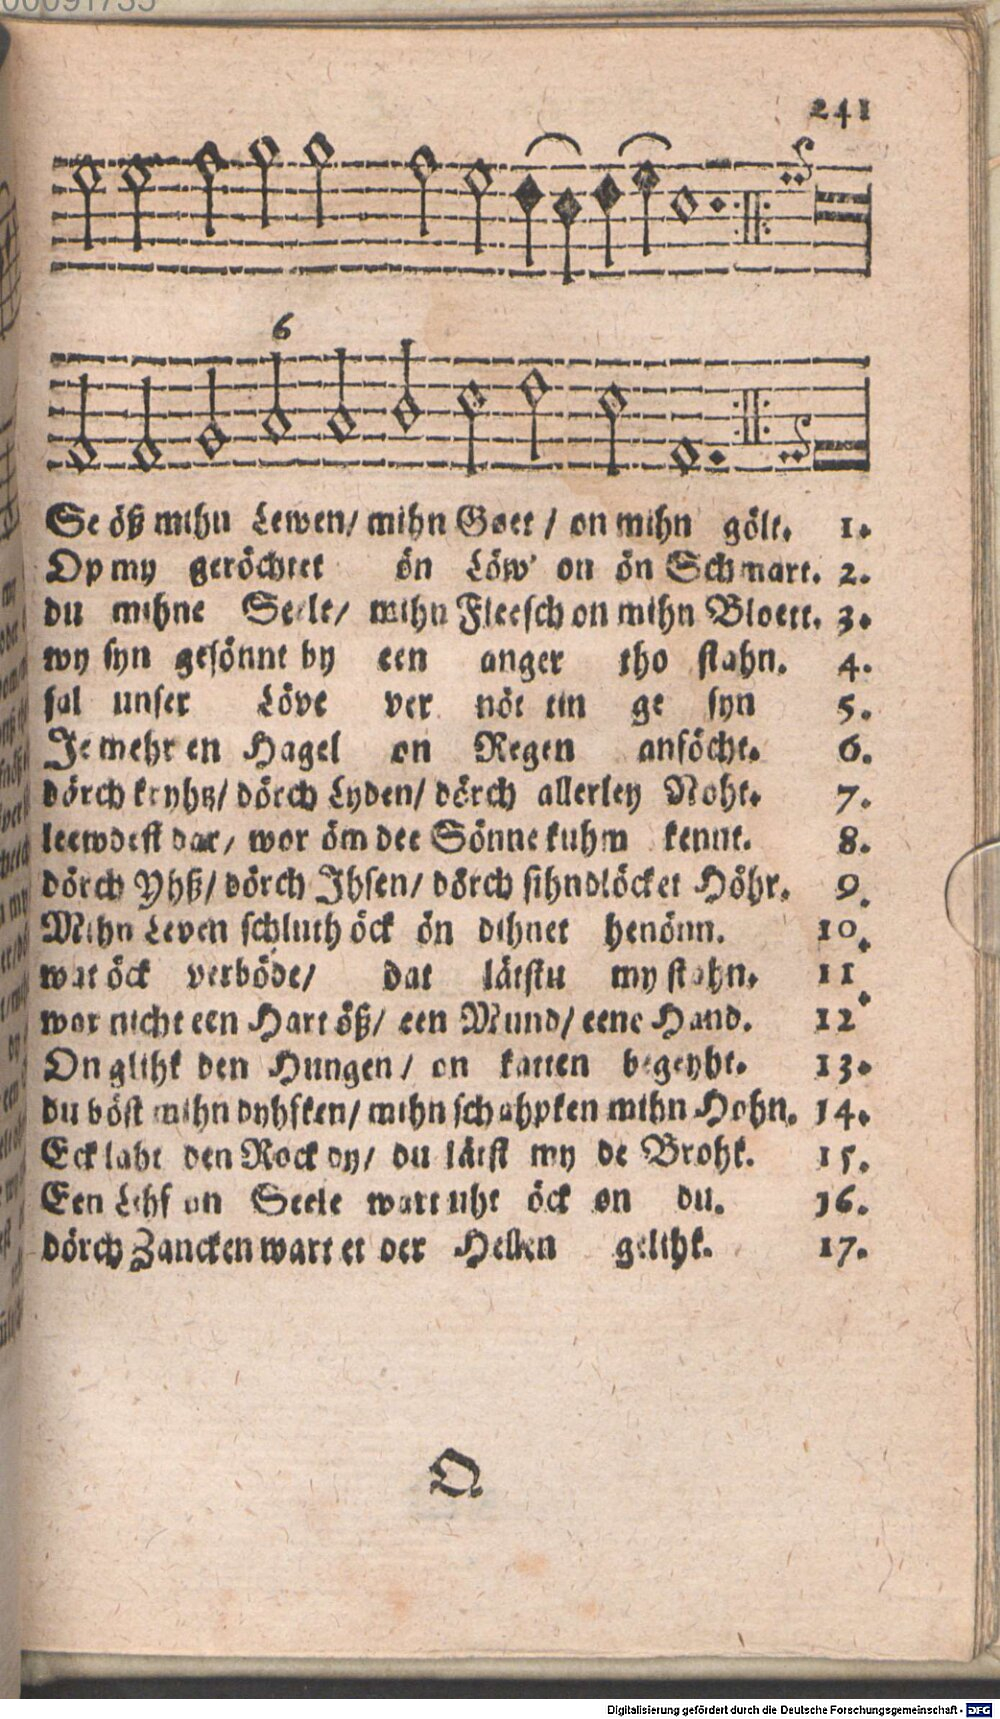 241
6
Se öß mihn Lewen/ mihn Goet / on mihn gölt. 1.
Op my geröchtet ön Löw' on ön Schmart. 2.
du mihne Seele/ mihn Fleesch on mihn Bloett. 3.
wy syn gesönnt by een anger tho stahn. 4.
sal unser Löve ver nöt tin ge syn 5.
Je mehr en Hagel on Regen anföcht. 6.
dörch kryhtz/ dörch Lyden/ dörch allerley Noht. 7.
leewdest dar/ wor öm dee Sönne kuhm kennt. 8.
dörch Yhß/ dörch Ihsen/ dörch sihndlöcket Höhr. 9.
Mihn Leven schluth öck ön dihnet henönn. 10.
wat öck verböde/ dat lätstu my stahn. 11.
wor nicht een Hart öß/ een Mund/ eene Hand. 12.
On glihk den Hungen/ on katten begeyht. 13.
du böst mihn dyhfken/ mihn schahpken mihn Hohn. 14.
Eck laht den Rock dy/ du lätst my de Brohk. 15.
Een Lihf on Seele wart uht öck on du. 16.
dörch Zancken wart et der Hellen gelihk. 17.
Q.
Digitalisierung gefördert durch die Deutsche Forschungsgemeinschaft - DFG